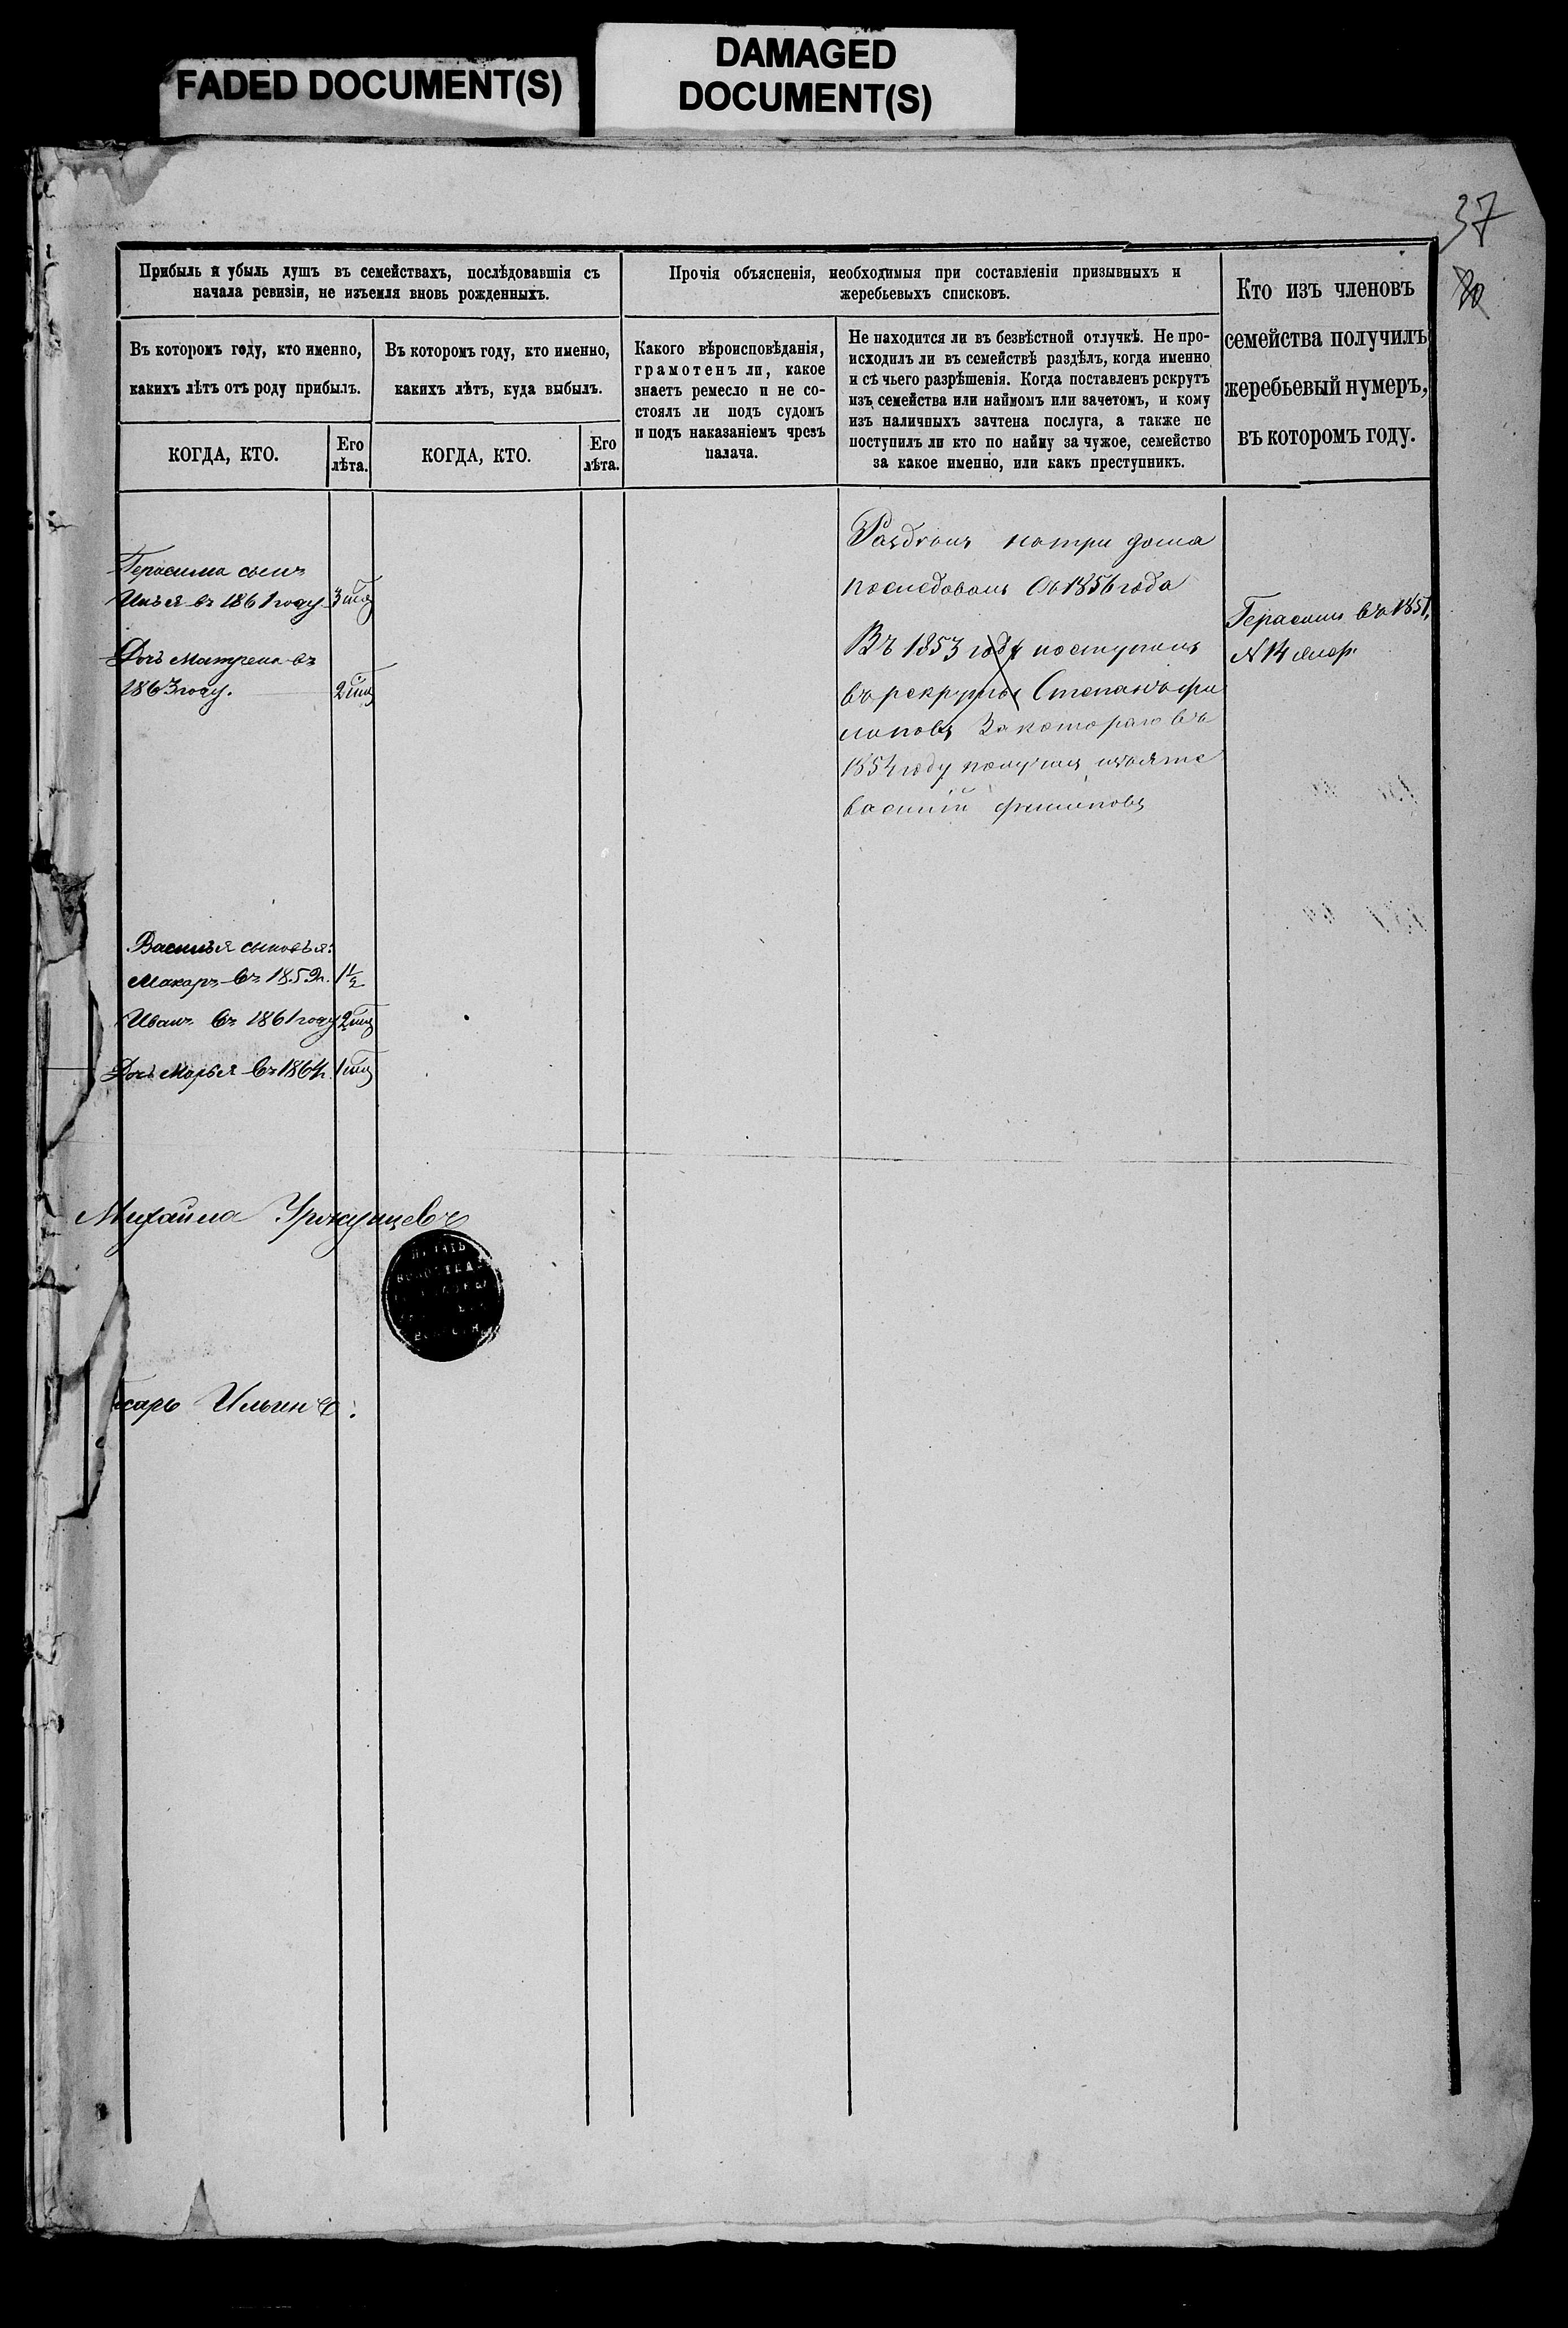 FADED DOCUMENT(S)
DAMAGED
DOCUMENT(S)
37
Прибыль и убыль душъ въ семействахъ, послѣдовавшія съ
начала ревизіи, не изъемля вновь рожденныхъ.
Прочія объясненія, необходимыя при составленіи призывныхъ и
жеребьевыхъ списковъ.
Кто изъ членовъ
семейства получилъ
жеребьевый нумеръ,
въ которомъ году.
Въ которомъ году, кто именно,
какихъ лѣтъ отъ роду прибылъ.
Въ которомъ году, кто именно,
какихъ лѣтъ, куда выбылъ.
Какого вѣроисповѣданія,
грамотенъ ли, какое
знаетъ ремесло и не со-
стоялъ ли подъ судомъ
и подъ наказаніемъ чрезъ
палача.
Не находится ли въ безвѣстной отлучкѣ. Не про-
исходилъ ли въ семействѣ раздѣлъ, когда именно
и съ чьего разрѣшенія. Когда поставленъ рекрутъ
изъ семейства или наймомъ или зачетомъ, и кому
изъ наличныхъ зачтена послуга, а также не
поступилъ ли кто по найму за чужое, семейство
за какое именно, или какъ преступникъ.
КОГДА, КТО.
Его
лѣта.
КОГДА, КТО.
Его
лѣта.
Герасима сынъ
Илья въ 1861 году
Дочь Матрена въ
1863 году.
Василья сыновья:
Макаръ въ 1859 г.
Иванъ въ 1861 году
Дочь Марья въ 1864 г.
Раздѣлъ на три дома
последовалъ съ 1856 года
Въ 1853 году поступилъ
въ рекруты Степанъ Фи
липовъ За котораго въ
1854 году получилъ
Василій Филиповъ
Герасимъ въ 1851,
N 14
Михайла
ПЕЧАТЬ
сарь Ильинъ.